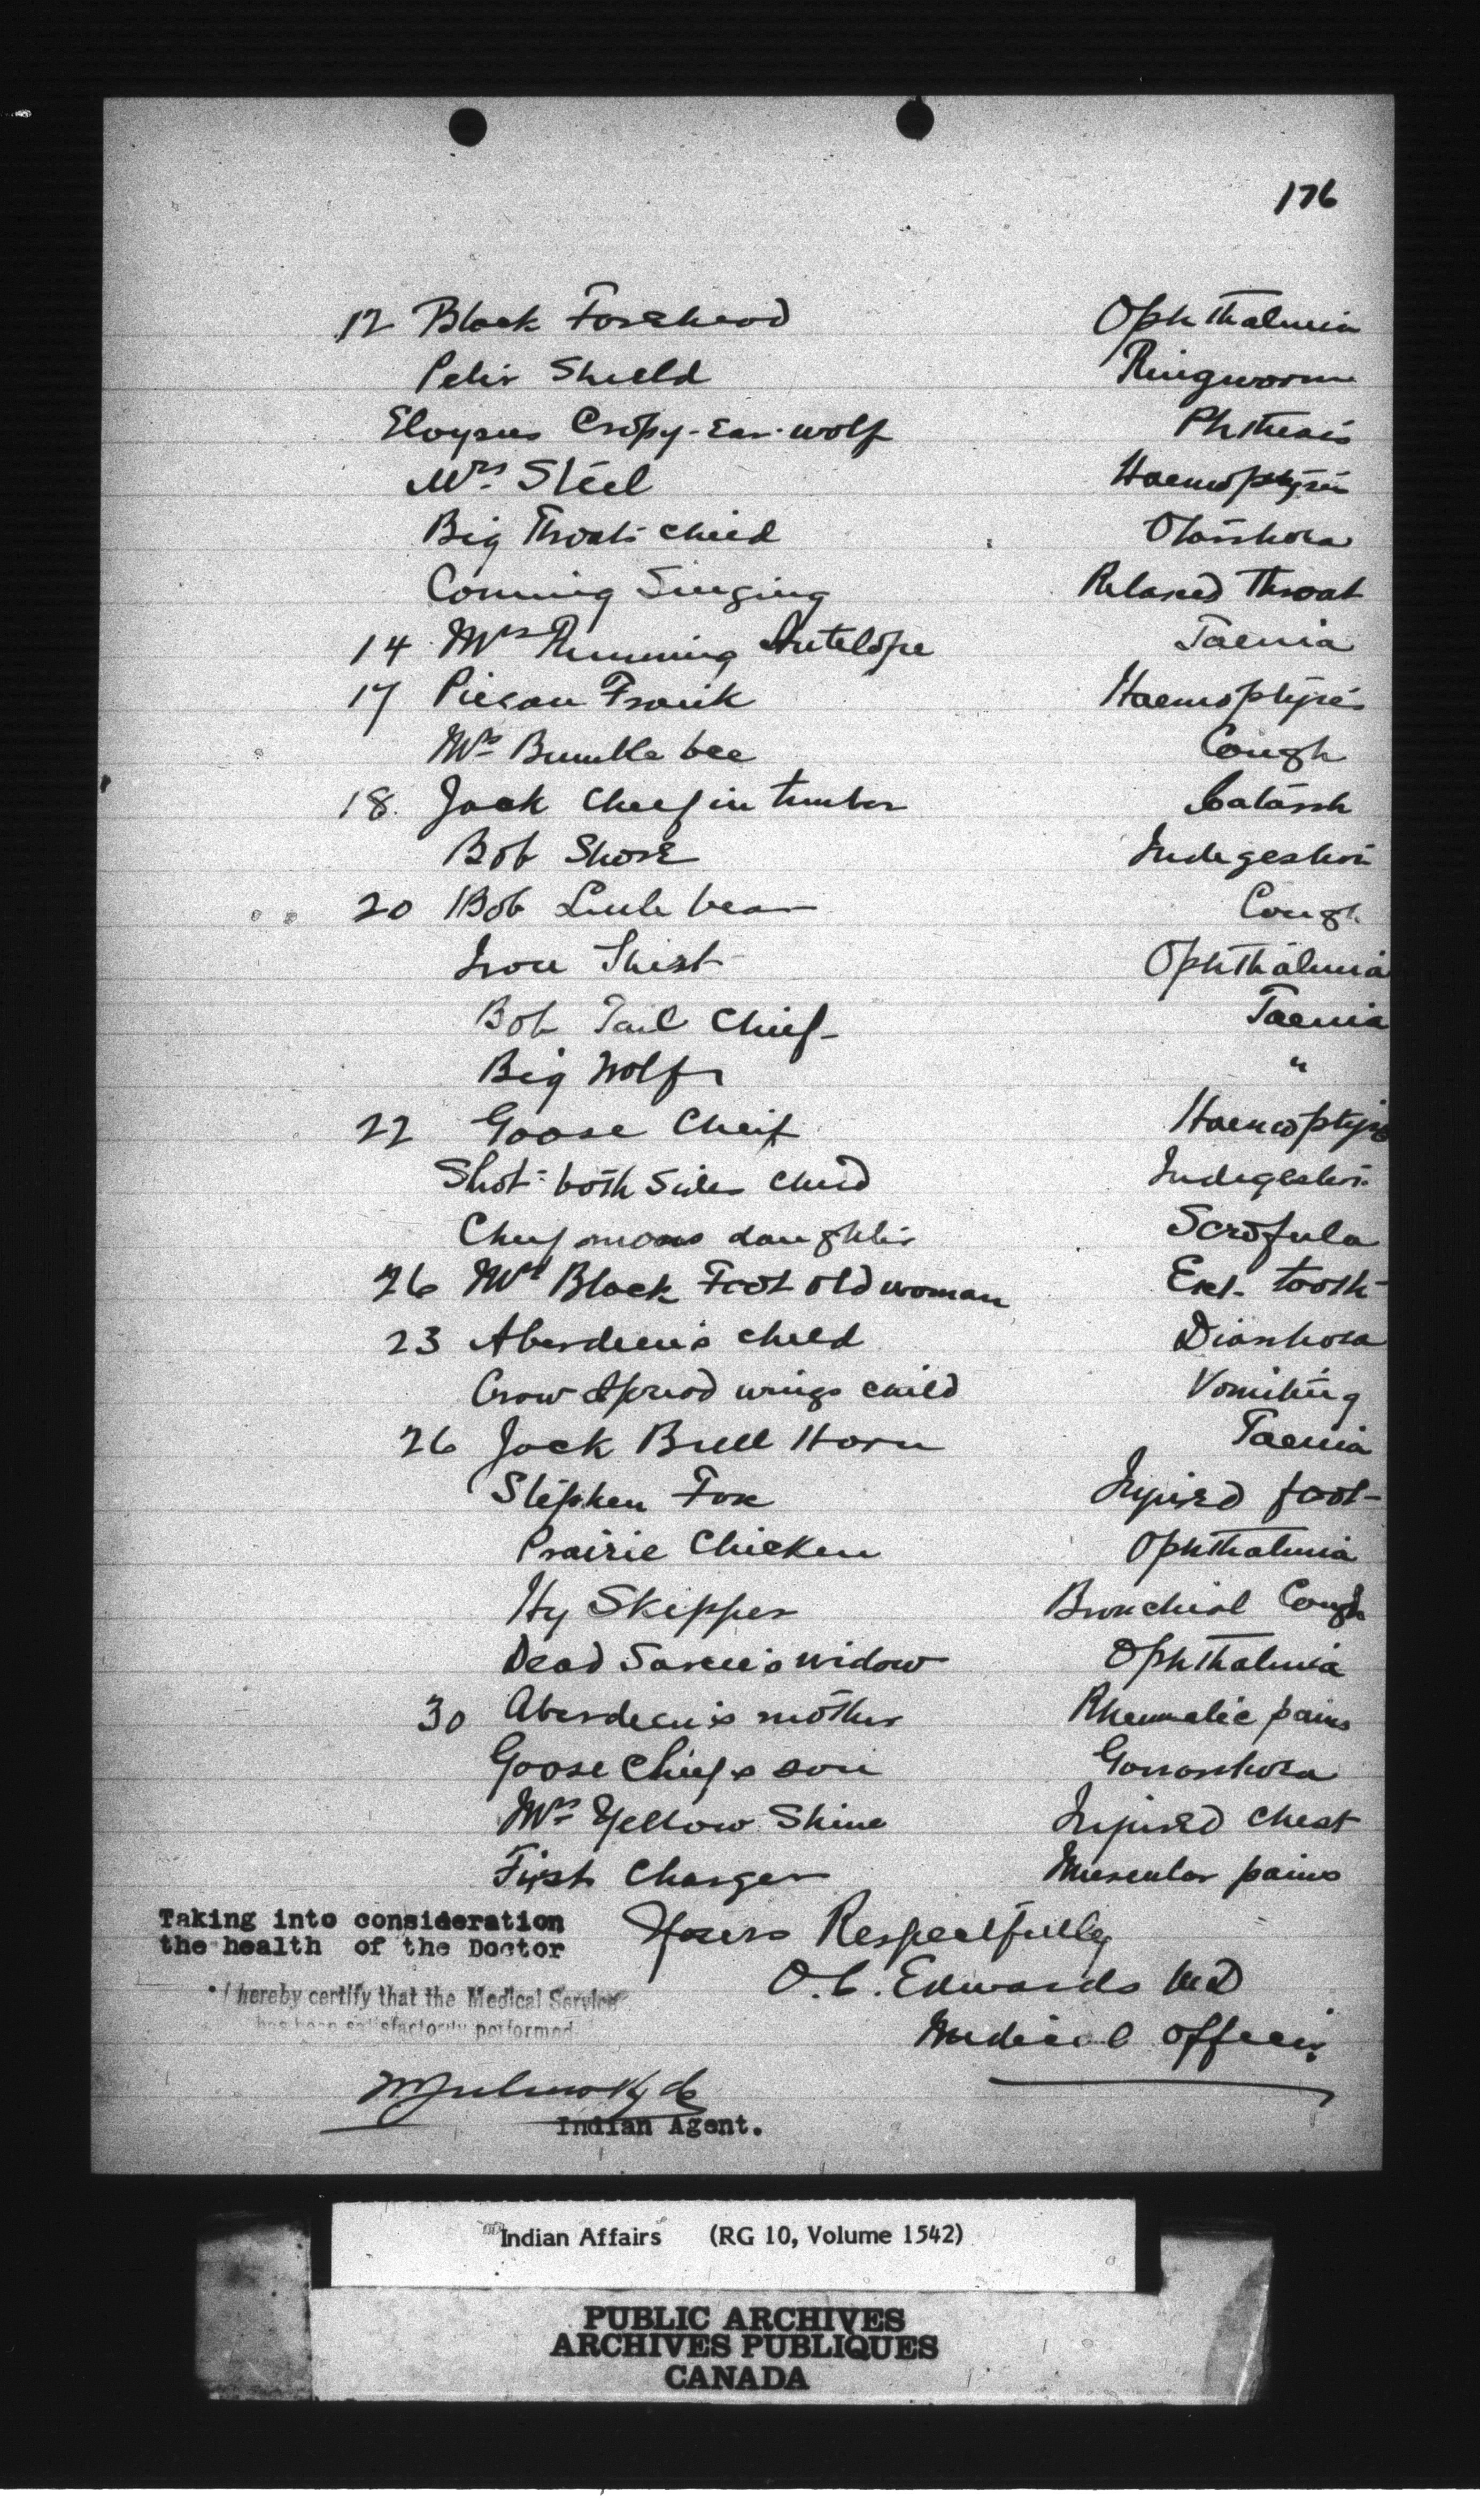 176
12 Black Forehead Ophthalmia
Peter Sheeld Ringworm
Eloysus Cropy-Ear-wolf Phthisis
Mrs Steel Haemoptysis
Big Throats child Otorrhoea
Comming Singing Relaxed Throat
14 Mrs Running Antelope Taenia
17 Piegan Frank Haemoptysis
Mrs Bumble bee Cough
18. Jack Cheef in timber Catarrh
Bob Shore Indegestion
20 Bob Little bear Cough
Iron Shirt Ophthalmia
Bob Tail Chief Taenia
Big Wolf "
22 Goose Cheif Haemoptysis
Shot-both Sides child Indegestion
Cheef moons daughter Scrofula
26 Mrs Black Foot old woman Ext. tooth
23 Aberdeen's child Diarrhoea
Crow Spread wings child Vomiting
26 Jack Bull Horn Taenia
Stephen Fox Injured foot
Prairie Chicken Ophthalmia
Hy Skipper Bronchial Cough
Dead Sarcee's widow Ophthalmia
30 Aberdeen's mother Rheumatic pains
Goose Chief's son Gonorrhoea
Mrs Yellow Shine Injured Chest
First Charger Muscular pains
Taking into consideration
the health of the Doctor
Yours Respectfully
O. C. Edwards MD
Medical Officer
I hereby certify that the Medical Service
has been satisfactorily performed
Indian Agent.
Indian Affairs (RG 10, Volume 1542)
PUBLIC ARCHIVES
ARCHIVES PUBLIQUES
CANADA